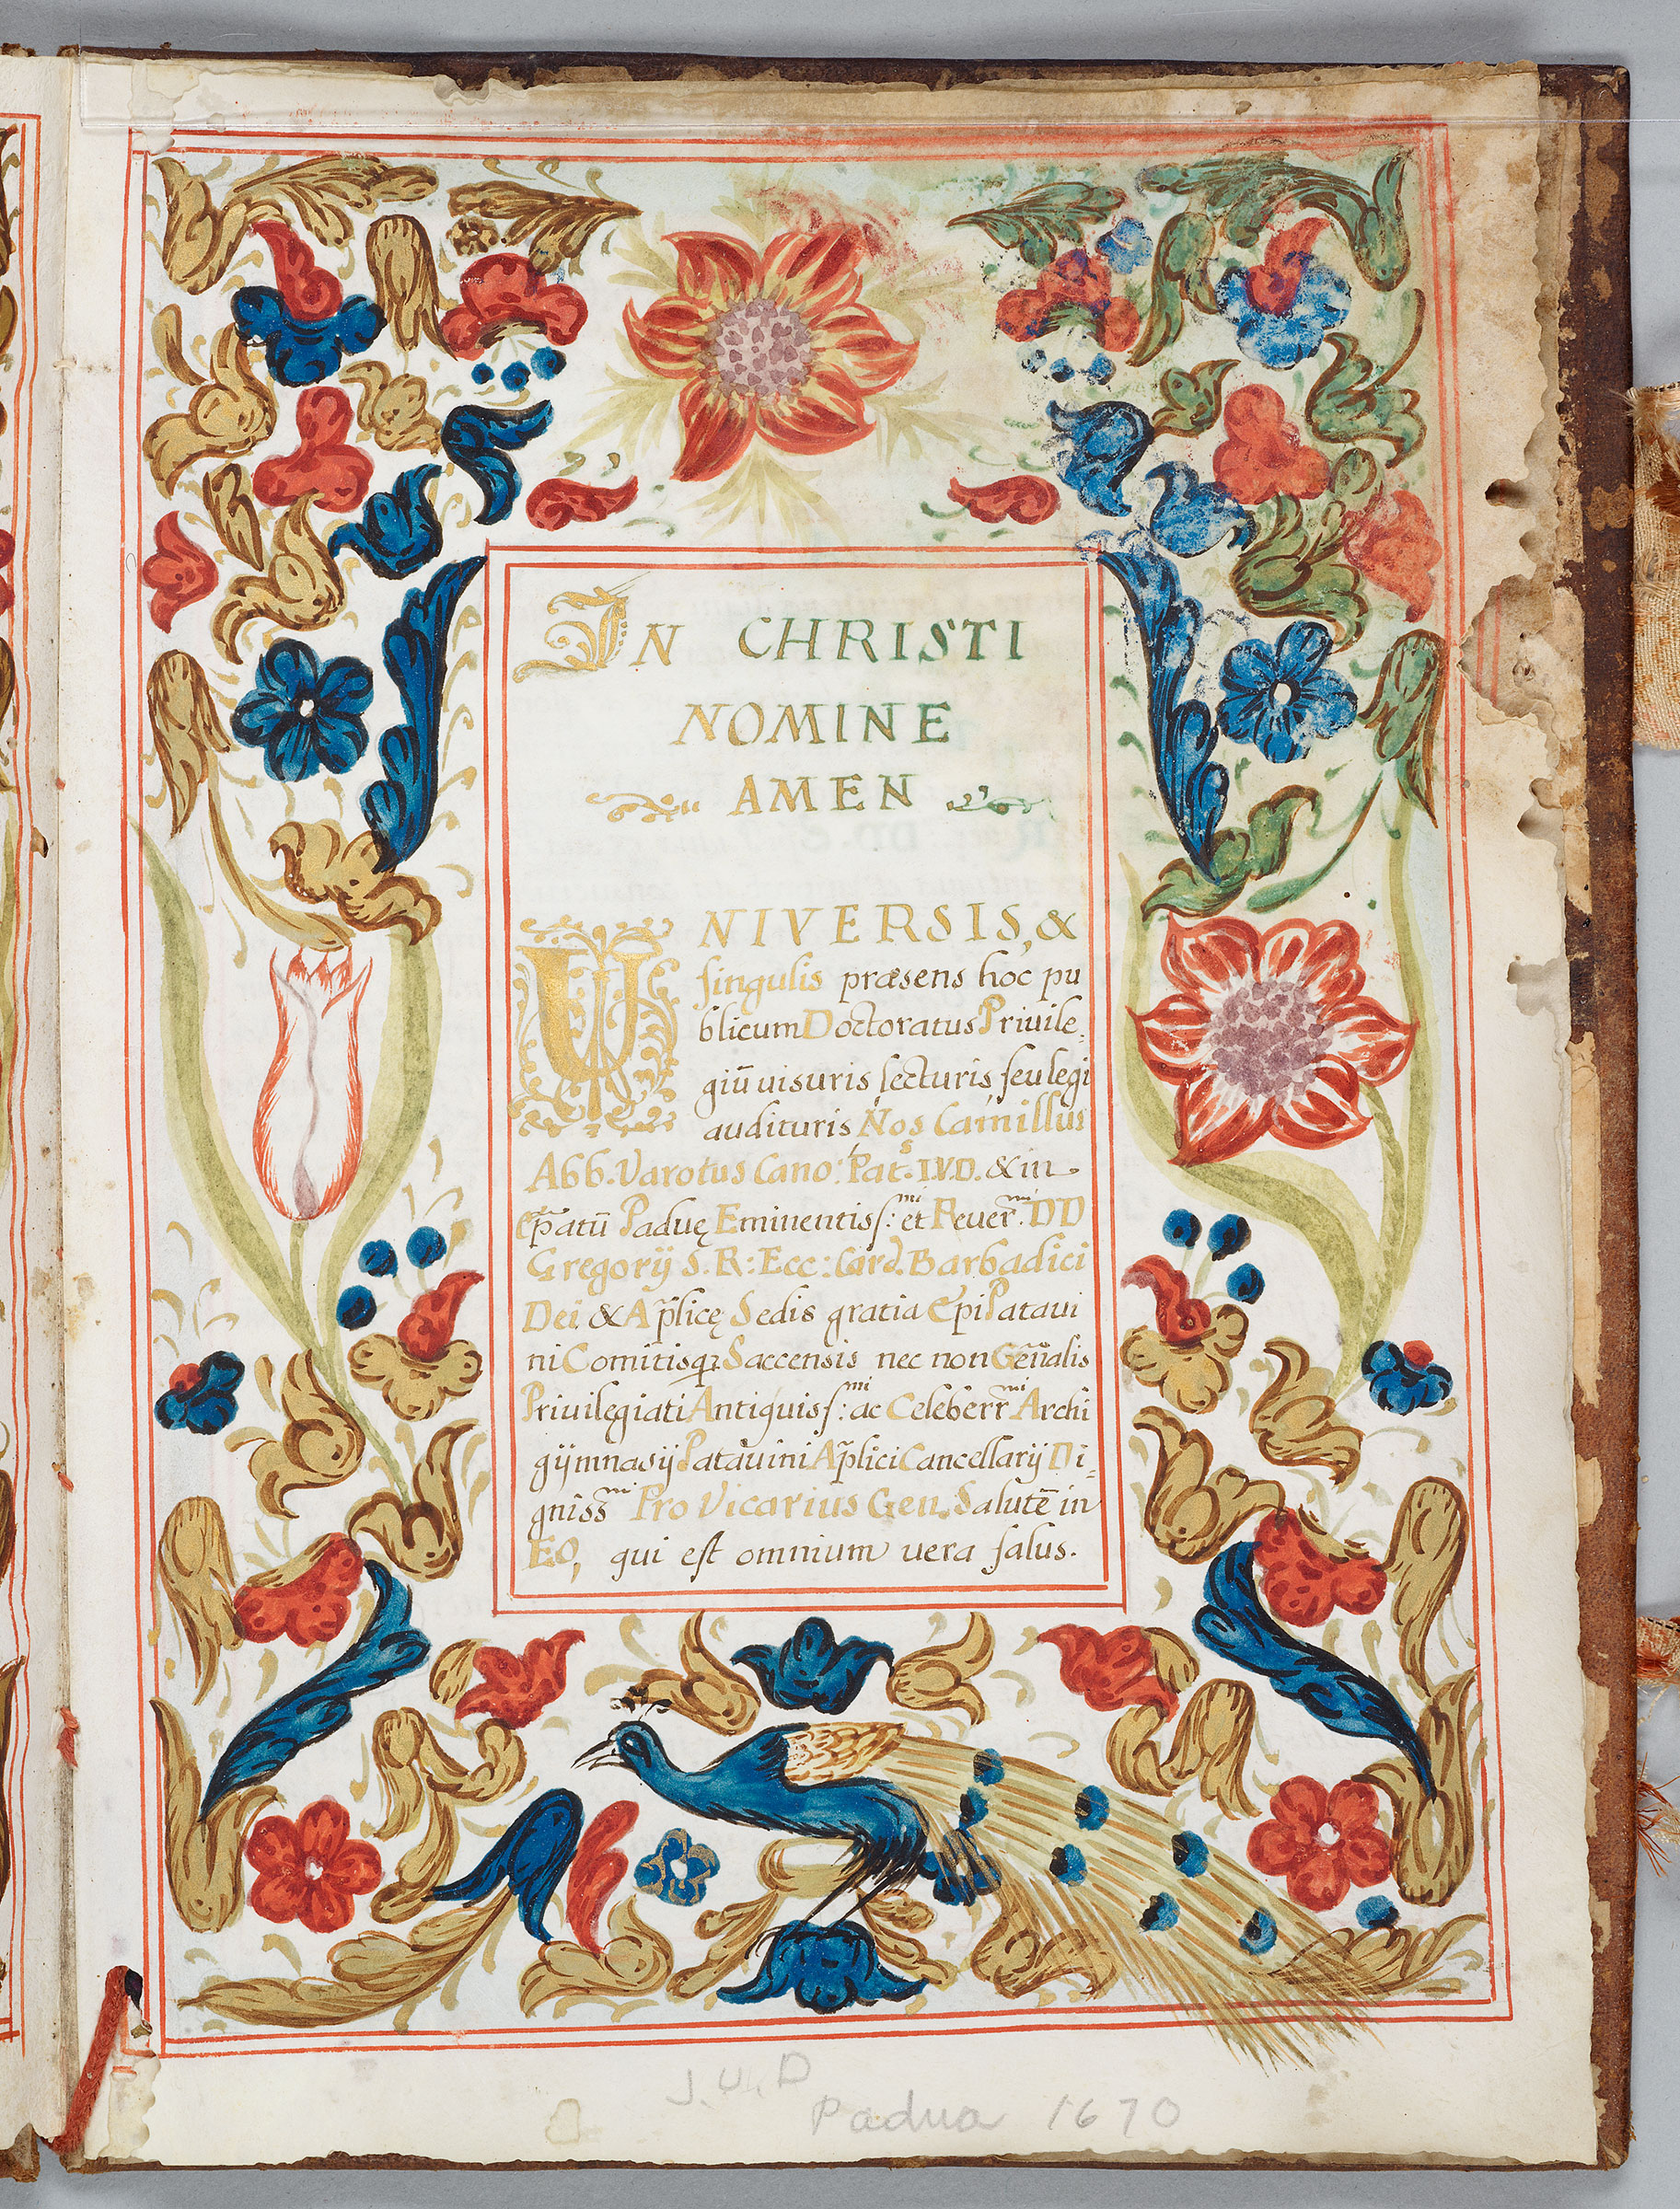 IN CHRISTI
NOMINE
AMEN
UNIVERSIS, &
singulis præsens hoc pu
blicum Doctoratus Priuile,
giū uisuris lecturis seu legi
audituris Nos Camillus
Abb. Varotus Cano: Pat.s I.V.D. & in
Ep̃atũ Paduę Eminentiss:mi et Reuer.mi DD
Gregorÿ S. R: Ecc: Card. Barbadici
Dei & Ap̃licę Sedis gratia Epi Pataui
ni Comitisqꝫ Saccensis nec non Gen̄alis
Priuilegiati Antiquiss:mi ac Celeberr.mi Archi
gÿmnasÿ Patauini Ap̃lici Cancellarÿ Di=
gniss.mi Pro Vicarius Gen. Salutē in
EO, qui est omnium uera salus.
J.U.D
Padua 1670